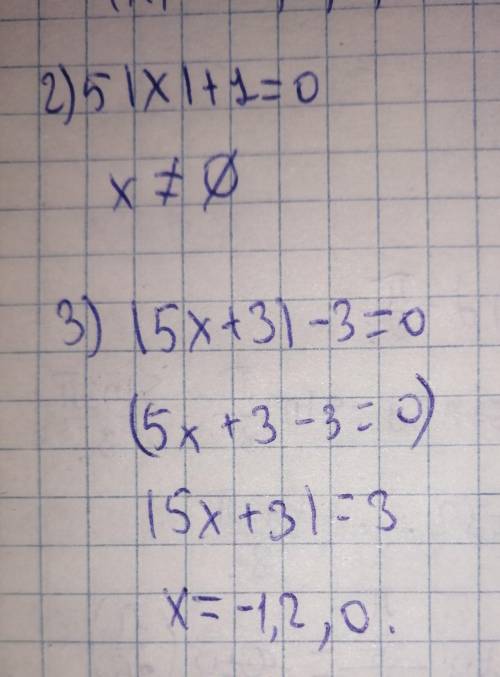 2) 5|x|+1=0
x ≠ ∅
3) |5x+3|-3=0
(5x+3-3=0)
|5x+3|=3
x=-1,2, 0.